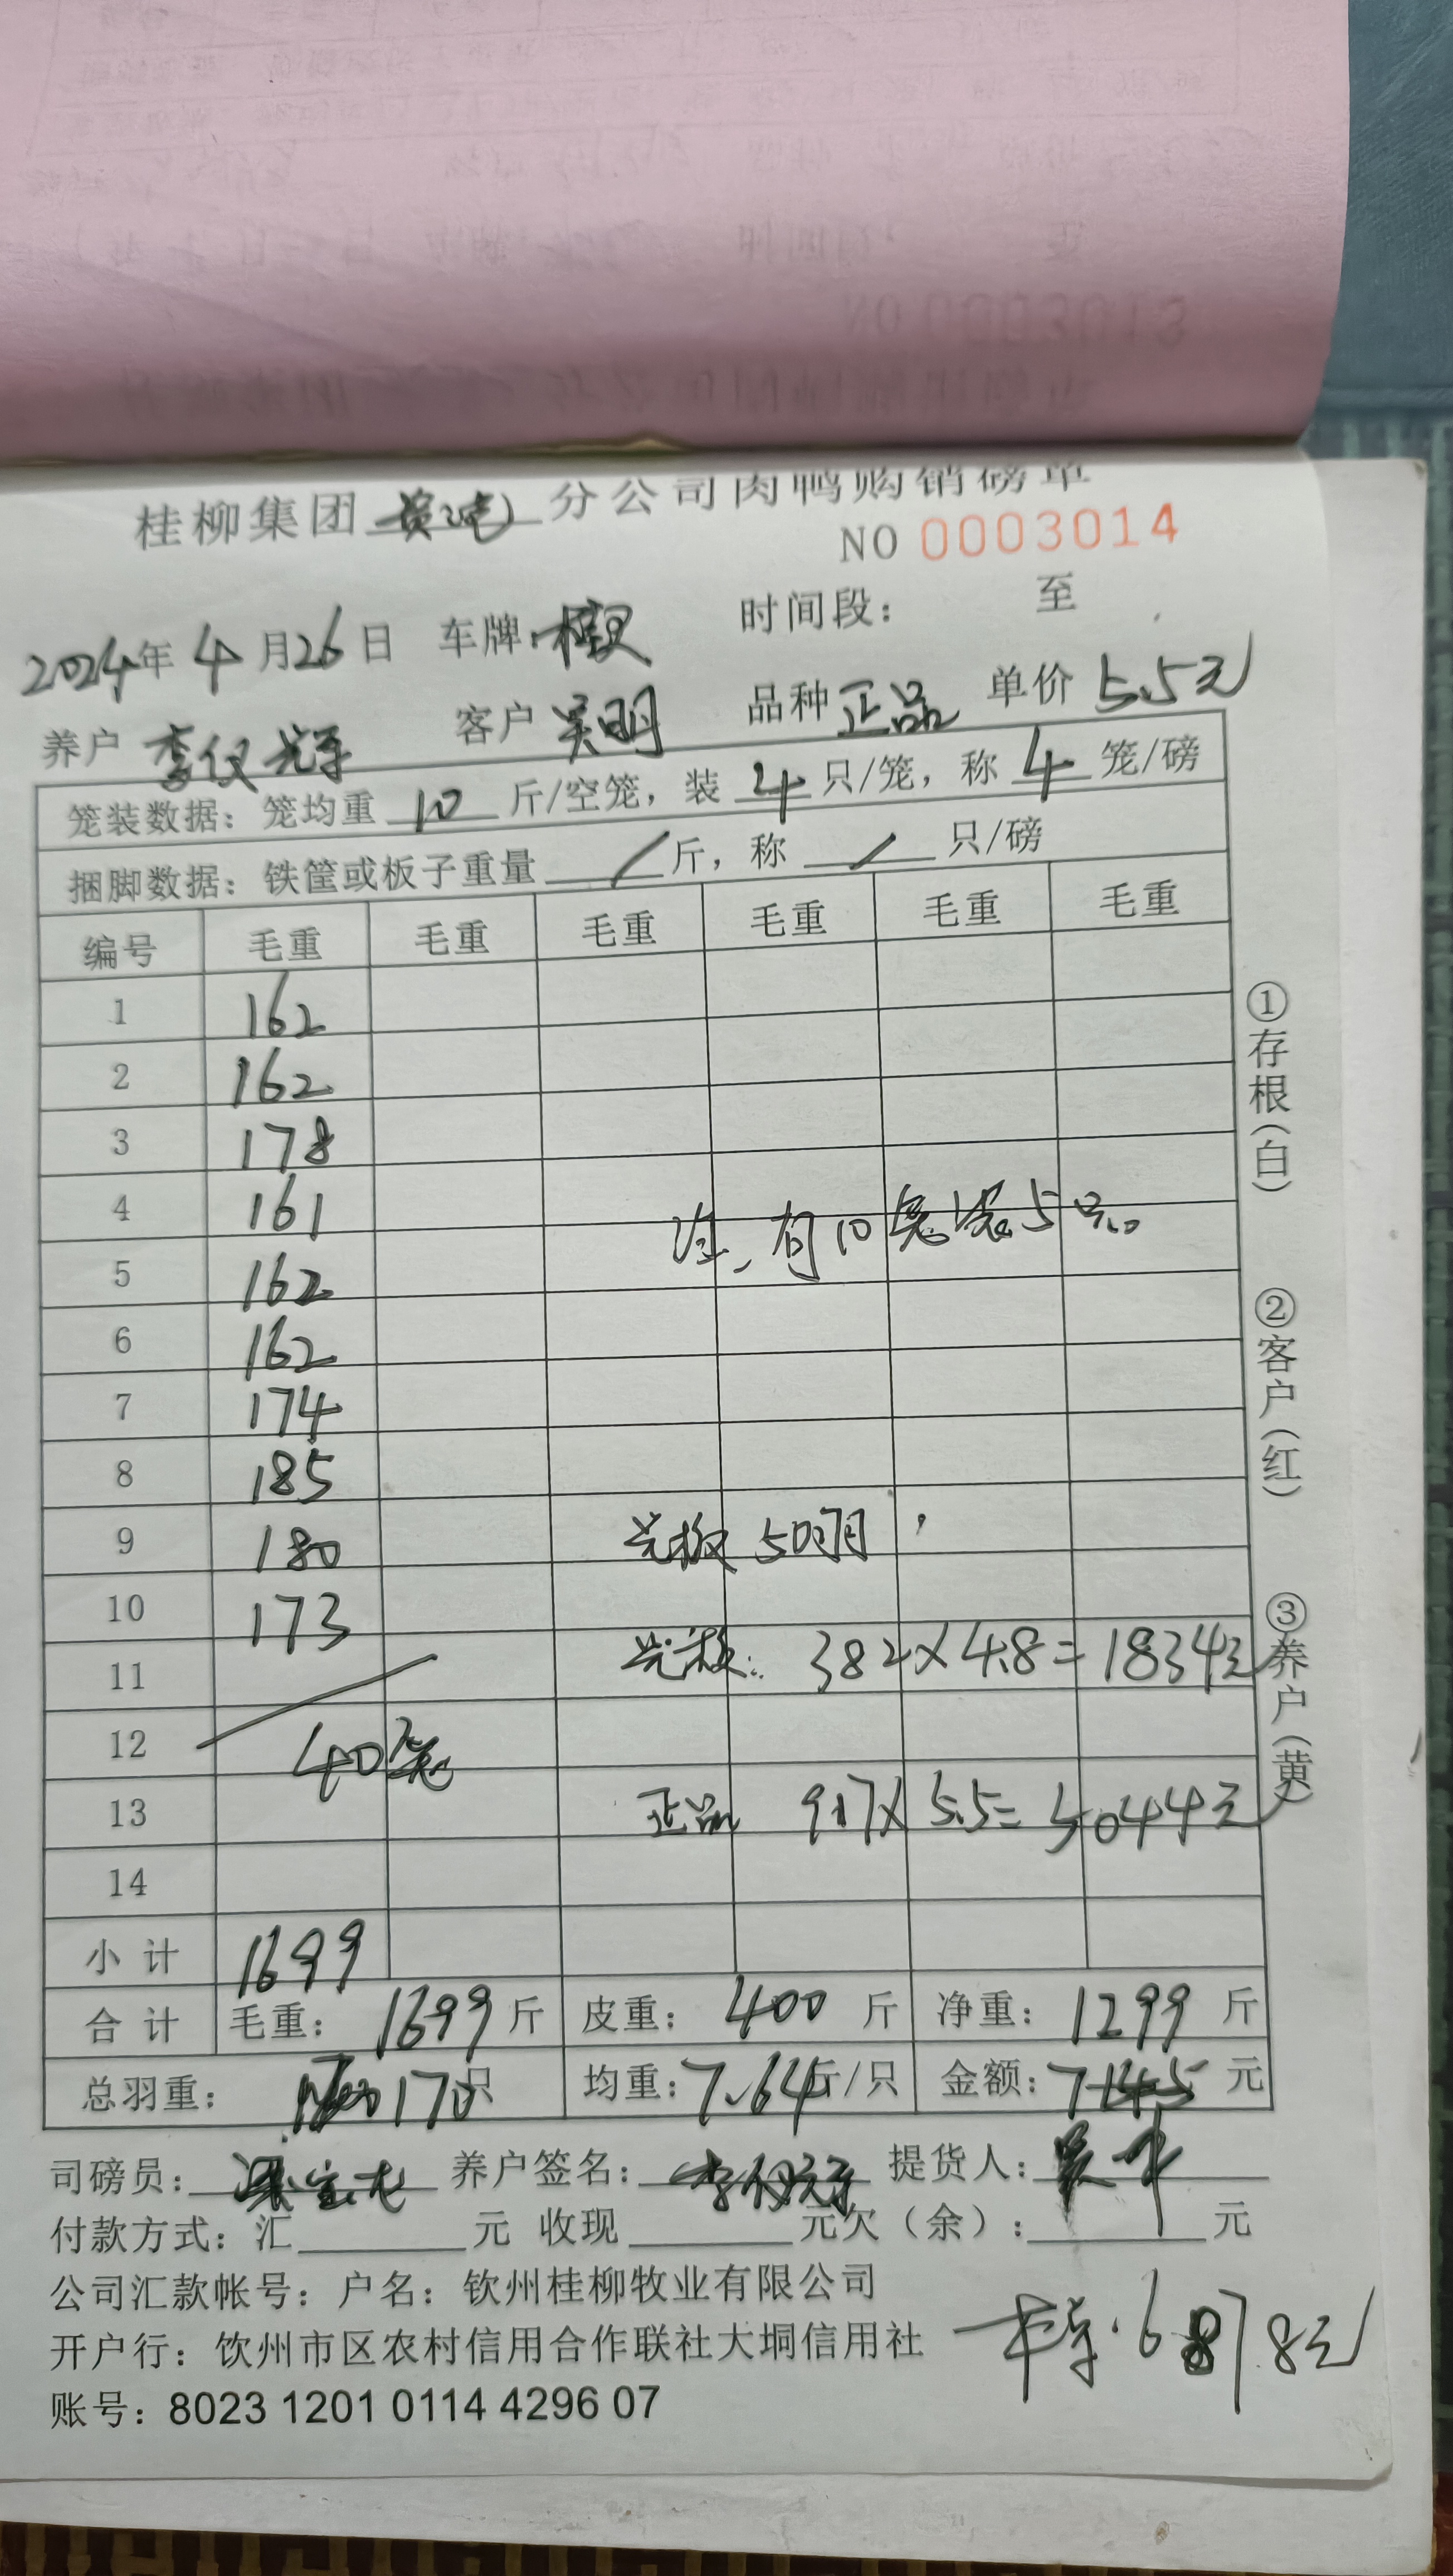 桂柳集团 分公司肉鸭购销磅单
NO 0003014
2024年 4月26日 车牌: 时间段: 至
养户 李仪光 客户 吴明 品种 正品 单价 5.5元
笼装数据：笼均重 10 斤/空笼，装 4 只/笼，称 4 笼/磅
捆脚数据：铁筐或板子重量 / 斤，称 / 只/磅
编号 毛重 毛重 毛重 毛重 毛重 毛重
1 162
2 162
3 178
4 161
注、有10笼装5只。
5 162
6 162
7 174
8 185
9 180
50只
10 173
11
382×4.8=1834元
12
40笼
13
正品 917×5.5=5044元
14
小计 1699
合计 毛重: 1699 斤 皮重: 400 斤 净重: 1299 斤
总羽重: 170 只 均重: 7.64 斤/只 金额: 7145 元
司磅员: 养户签名: 提货人:
付款方式: 汇 元 收现 元欠（余）: 元
公司汇款帐号: 户名: 钦州桂柳牧业有限公司
开户行: 钦州市区农村信用合作联社大垌信用社
6878元
账号: 8023 1201 0114 4296 07
①存根(白)
②客户(红)
③养户(黄)